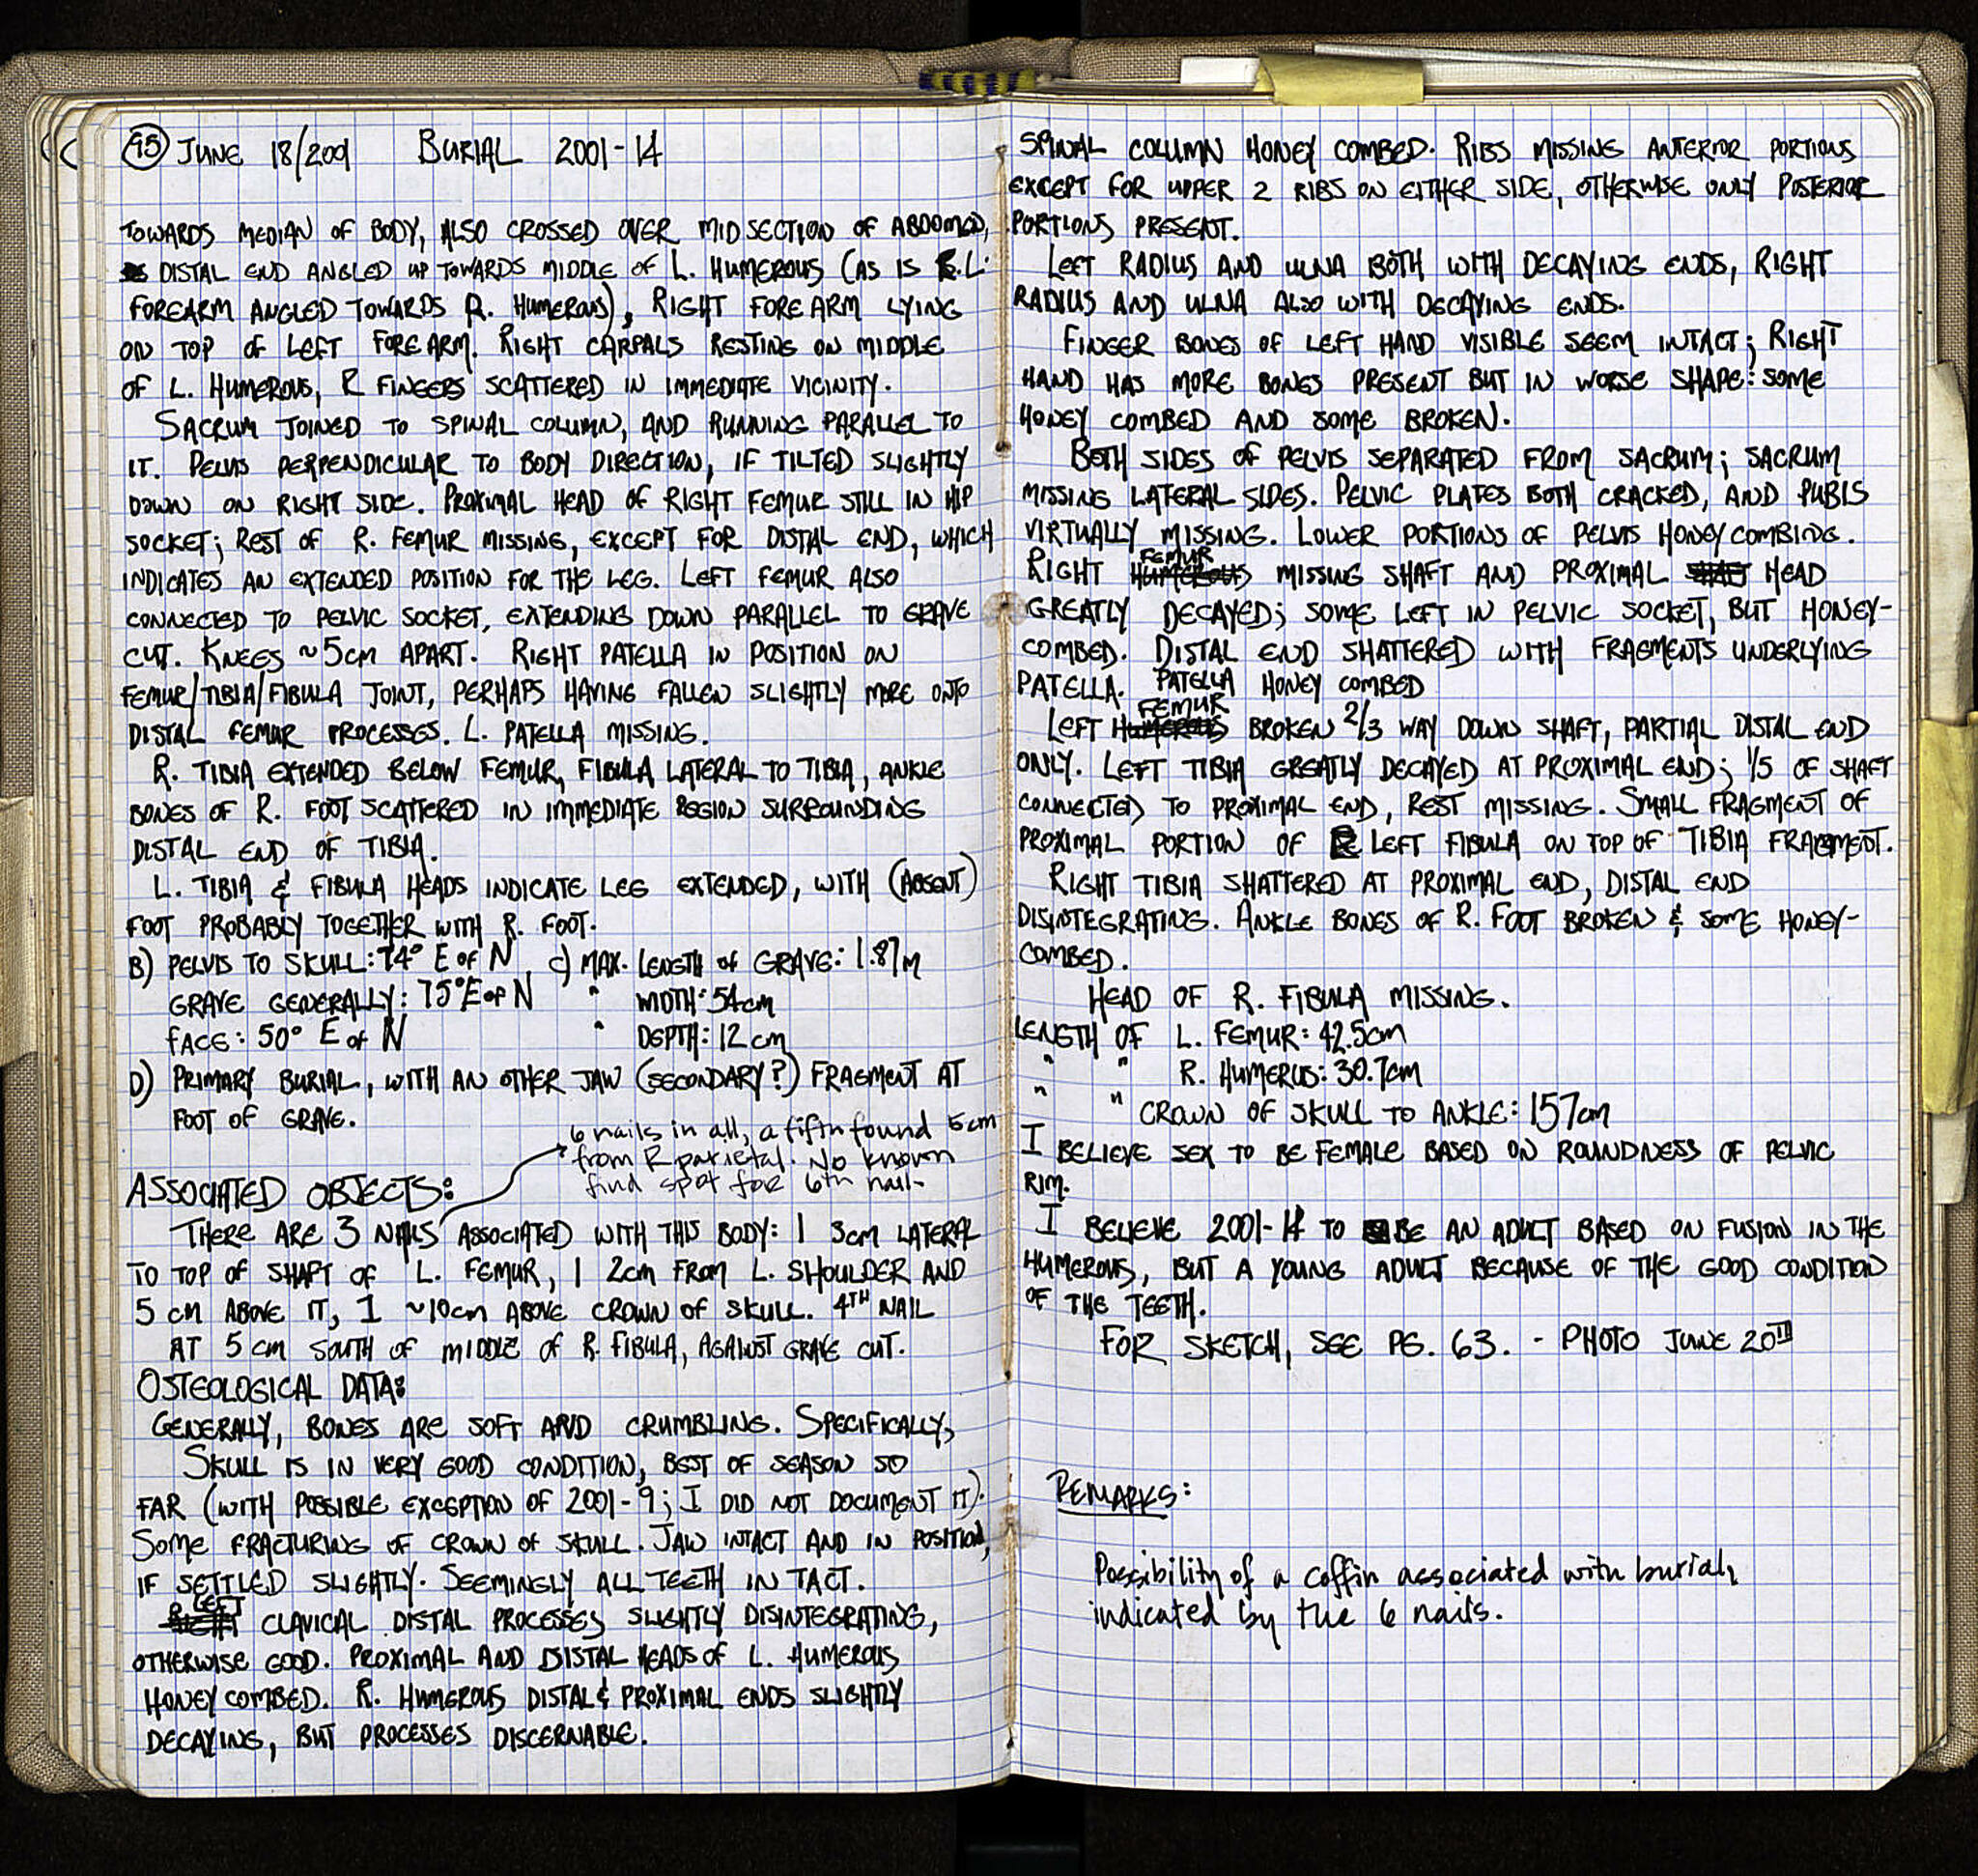 95 JUNE 18/2001 BURIAL 2001-14
TOWARDS MEDIAN OF BODY, ALSO CROSSED OVER MIDSECTION OF ABDOMEN,
DISTAL END ANGLED UP TOWARDS MIDDLE OF L. HUMEROUS (AS IS L.
FOREARM ANGLED TOWARDS R. HUMEROUS), RIGHT FOREARM LYING
ON TOP OF LEFT FOREARM. RIGHT CARPALS RESTING ON MIDDLE
OF L. HUMEROUS, R FINGERS SCATTERED IN IMMEDIATE VICINITY.
SACRUM JOINED TO SPINAL COLUMN, AND RUNNING PARALLEL TO
IT. PELVIS PERPENDICULAR TO BODY DIRECTION, IF TILTED SLIGHTLY
DOWN ON RIGHT SIDE. PROXIMAL HEAD OF RIGHT FEMUR STILL IN HIP
SOCKET; REST OF R. FEMUR MISSING, EXCEPT FOR DISTAL END, WHICH
INDICATES AN EXTENDED POSITION FOR THE LEG. LEFT FEMUR ALSO
CONNECTED TO PELVIC SOCKET, EXTENDING DOWN PARALLEL TO GRAVE
CUT. KNEES ~5cm APART. RIGHT PATELLA IN POSITION ON
FEMUR/TIBIA/FIBULA JOINT, PERHAPS HAVING FALLEN SLIGHTLY MORE ONTO
DISTAL FEMUR PROCESSES. L. PATELLA MISSING.
R. TIBIA EXTENDED BELOW FEMUR, FIBULA LATERAL TO TIBIA, ANKLE
BONES OF R. FOOT SCATTERED IN IMMEDIATE REGION SURROUNDING
DISTAL END OF TIBIA.
L. TIBIA & FIBULA HEADS INDICATE LEG EXTENDED, WITH (ABSENT)
FOOT PROBABLY TOGETHER WITH R. FOOT.
B) PELVIS TO SKULL: 74° E of N C) MAX. LENGTH OF GRAVE: 1.87M
GRAVE GENERALLY: 75° E of N " WIDTH: 54cm
FACE: 50° E of N " DEPTH: 12cm
D) PRIMARY BURIAL, WITH AN OTHER JAW (SECONDARY?) FRAGMENT AT
FOOT OF GRAVE.
6 nails in all, a fifth found 5cm
from R parietal. No known
find spot for 6th nail.
ASSOCIATED OBJECTS:
THERE ARE 3 NAILS ASSOCIATED WITH THIS BODY: 1 3cm LATERAL
TO TOP OF SHAFT OF L. FEMUR, 1 2cm FROM L. SHOULDER AND
5 cm ABOVE IT, 1 ~10cm ABOVE CROWN OF SKULL. 4TH NAIL
AT 5 cm SOUTH OF MIDDLE OF R. FIBULA, AGAINST GRAVE CUT.
OSTEOLOGICAL DATA:
GENERALLY, BONES ARE SOFT AND CRUMBLING. SPECIFICALLY,
SKULL IS IN VERY GOOD CONDITION, BEST OF SEASON SO
FAR (WITH POSSIBLE EXCEPTION OF 2001-9; I DID NOT DOCUMENT IT).
SOME FRACTURING OF CROWN OF SKULL. JAW INTACT AND IN POSITION,
IF SETTLED SLIGHTLY. SEEMINGLY ALL TEETH IN TACT.
LEFT CLAVICAL DISTAL PROCESSES SLIGHTLY DISINTEGRATING,
OTHERWISE GOOD. PROXIMAL AND DISTAL HEADS OF L. HUMEROUS
HONEY COMBED. R. HUMEROUS DISTAL & PROXIMAL ENDS SLIGHTLY
DECAYING, BUT PROCESSES DISCERNABLE.
SPINAL COLUMN HONEY COMBED. RIBS MISSING ANTERIOR PORTIONS
EXCEPT FOR UPPER 2 RIBS ON EITHER SIDE, OTHERWISE ONLY POSTERIOR
PORTIONS PRESENT.
LEFT RADIUS AND ULNA BOTH WITH DECAYING ENDS, RIGHT
RADIUS AND ULNA ALSO WITH DECAYING ENDS.
FINGER BONES OF LEFT HAND VISIBLE SEEM INTACT; RIGHT
HAND HAS MORE BONES PRESENT BUT IN WORSE SHAPE: SOME
HONEY COMBED AND SOME BROKEN.
BOTH SIDES OF PELVIS SEPARATED FROM SACRUM; SACRUM
MISSING LATERAL SIDES. PELVIC PLATES BOTH CRACKED, AND PUBIS
VIRTUALLY MISSING. LOWER PORTIONS OF PELVIS HONEYCOMBING.
RIGHT HUMEROUS FEMUR MISSING SHAFT AND PROXIMAL HEAD
GREATLY DECAYED; SOME LEFT IN PELVIC SOCKET, BUT HONEY-
COMBED. DISTAL END SHATTERED WITH FRAGMENTS UNDERLYING
PATELLA. PATELLA HONEY COMBED
LEFT HUMEROUS FEMUR BROKEN 2/3 WAY DOWN SHAFT, PARTIAL DISTAL END
ONLY. LEFT TIBIA GREATLY DECAYED AT PROXIMAL END; 1/5 OF SHAFT
CONNECTED TO PROXIMAL END, REST MISSING. SMALL FRAGMENT OF
PROXIMAL PORTION OF LEFT FIBULA ON TOP OF TIBIA FRAGMENT.
RIGHT TIBIA SHATTERED AT PROXIMAL END, DISTAL END
DISINTEGRATING. ANKLE BONES OF R. FOOT BROKEN & SOME HONEY-
COMBED.
HEAD OF R. FIBULA MISSING.
LENGTH OF L. FEMUR: 42.5cm
" " R. HUMERUS: 30.7cm
" " CROWN OF SKULL TO ANKLE: 157cm
I BELIEVE SEX TO BE FEMALE BASED ON ROUNDNESS OF PELVIC
RIM.
I BELIEVE 2001-14 TO BE AN ADULT BASED ON FUSION IN THE
HUMEROUS, BUT A YOUNG ADULT BECAUSE OF THE GOOD CONDITION
OF THE TEETH.
FOR SKETCH, SEE PG. 63. - PHOTO JUNE 20TH
REMARKS:
Possibility of a coffin associated with burial,
indicated by the 6 nails.